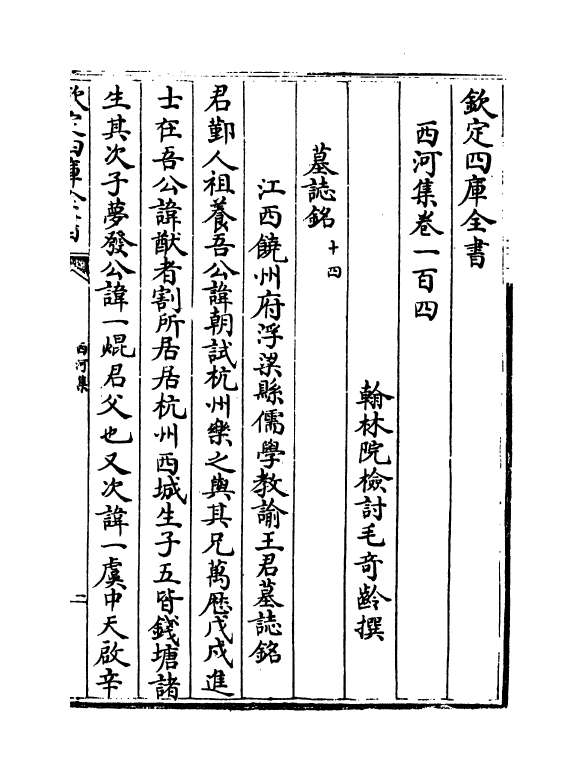 欽定四庫全書
西河集卷一百四
翰林院檢討毛奇齡撰
墓誌銘十四
江西饒州府浮梁縣儒學教諭王君墓誌銘
君鄞人祖養吾公諱朝試杭州樂之與其兄萬厯戊戌進
士在吾公諱猷者割所居居杭州西城生子五皆錢塘諸
生其次子夢發公諱一焜君父也又次諱一虞中天啟辛
欽定四庫全書
西河集